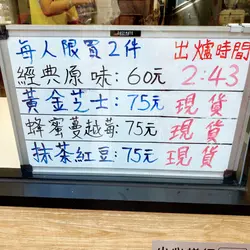 每人限買2件 出爐時間
經典原味:60元 2:43
黃金芝士:75元 現貨
蜂蜜蔓越莓:75元 現貨
抹茶紅豆:75元 現貨